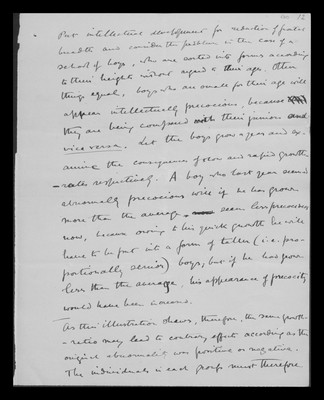 12
But intellectual development for reduction of
breadth and consider the problem in the case of a
school of boys, who are sorted into forms according
to their heights without regard to their age. Other
things equal, boys who are small for their age will
appear intellectually precocious, because
they are being compared with their juniors and
vice versa. Let the boys grow a year and ex-
amine the consequence of slow and rapid growth
-rates respectively. A boy who last year seemed
abnormally precocious will if he has grown
more than the average seem less precocious
now, because owing to his quick growth he will
have to be put into a form of taller (i.e. pro-
portionally senior) boys, but if he has grown
less than the average, his appearance of precocity
would have been increased.
As this illustration shows, therefore, the same growth
-ratio may lead to contrary effects according as the
original abnormality was positive or negative.
The individuals in each group must therefore